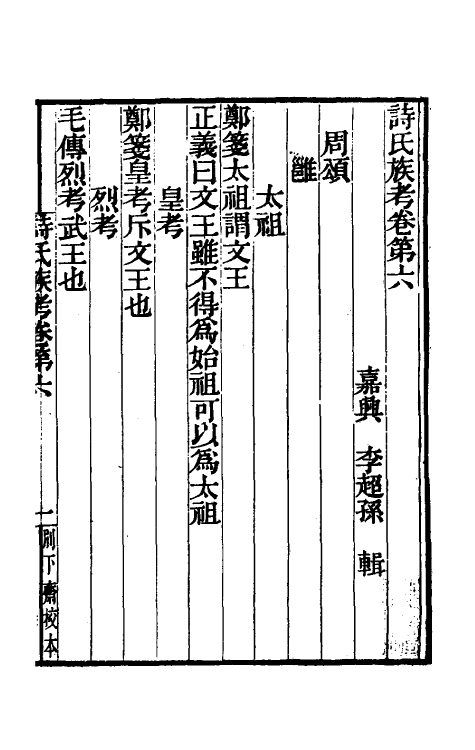 詩氏族考卷第六
嘉興 李超孫 輯
周頌
雝
太祖
鄭箋太祖謂文王
正義曰文王雖不得為始祖可以為太祖
皇考
鄭箋皇考斥文王也
烈考
毛傳烈考武王也
詩氏族考卷第六 一 別下齋校本